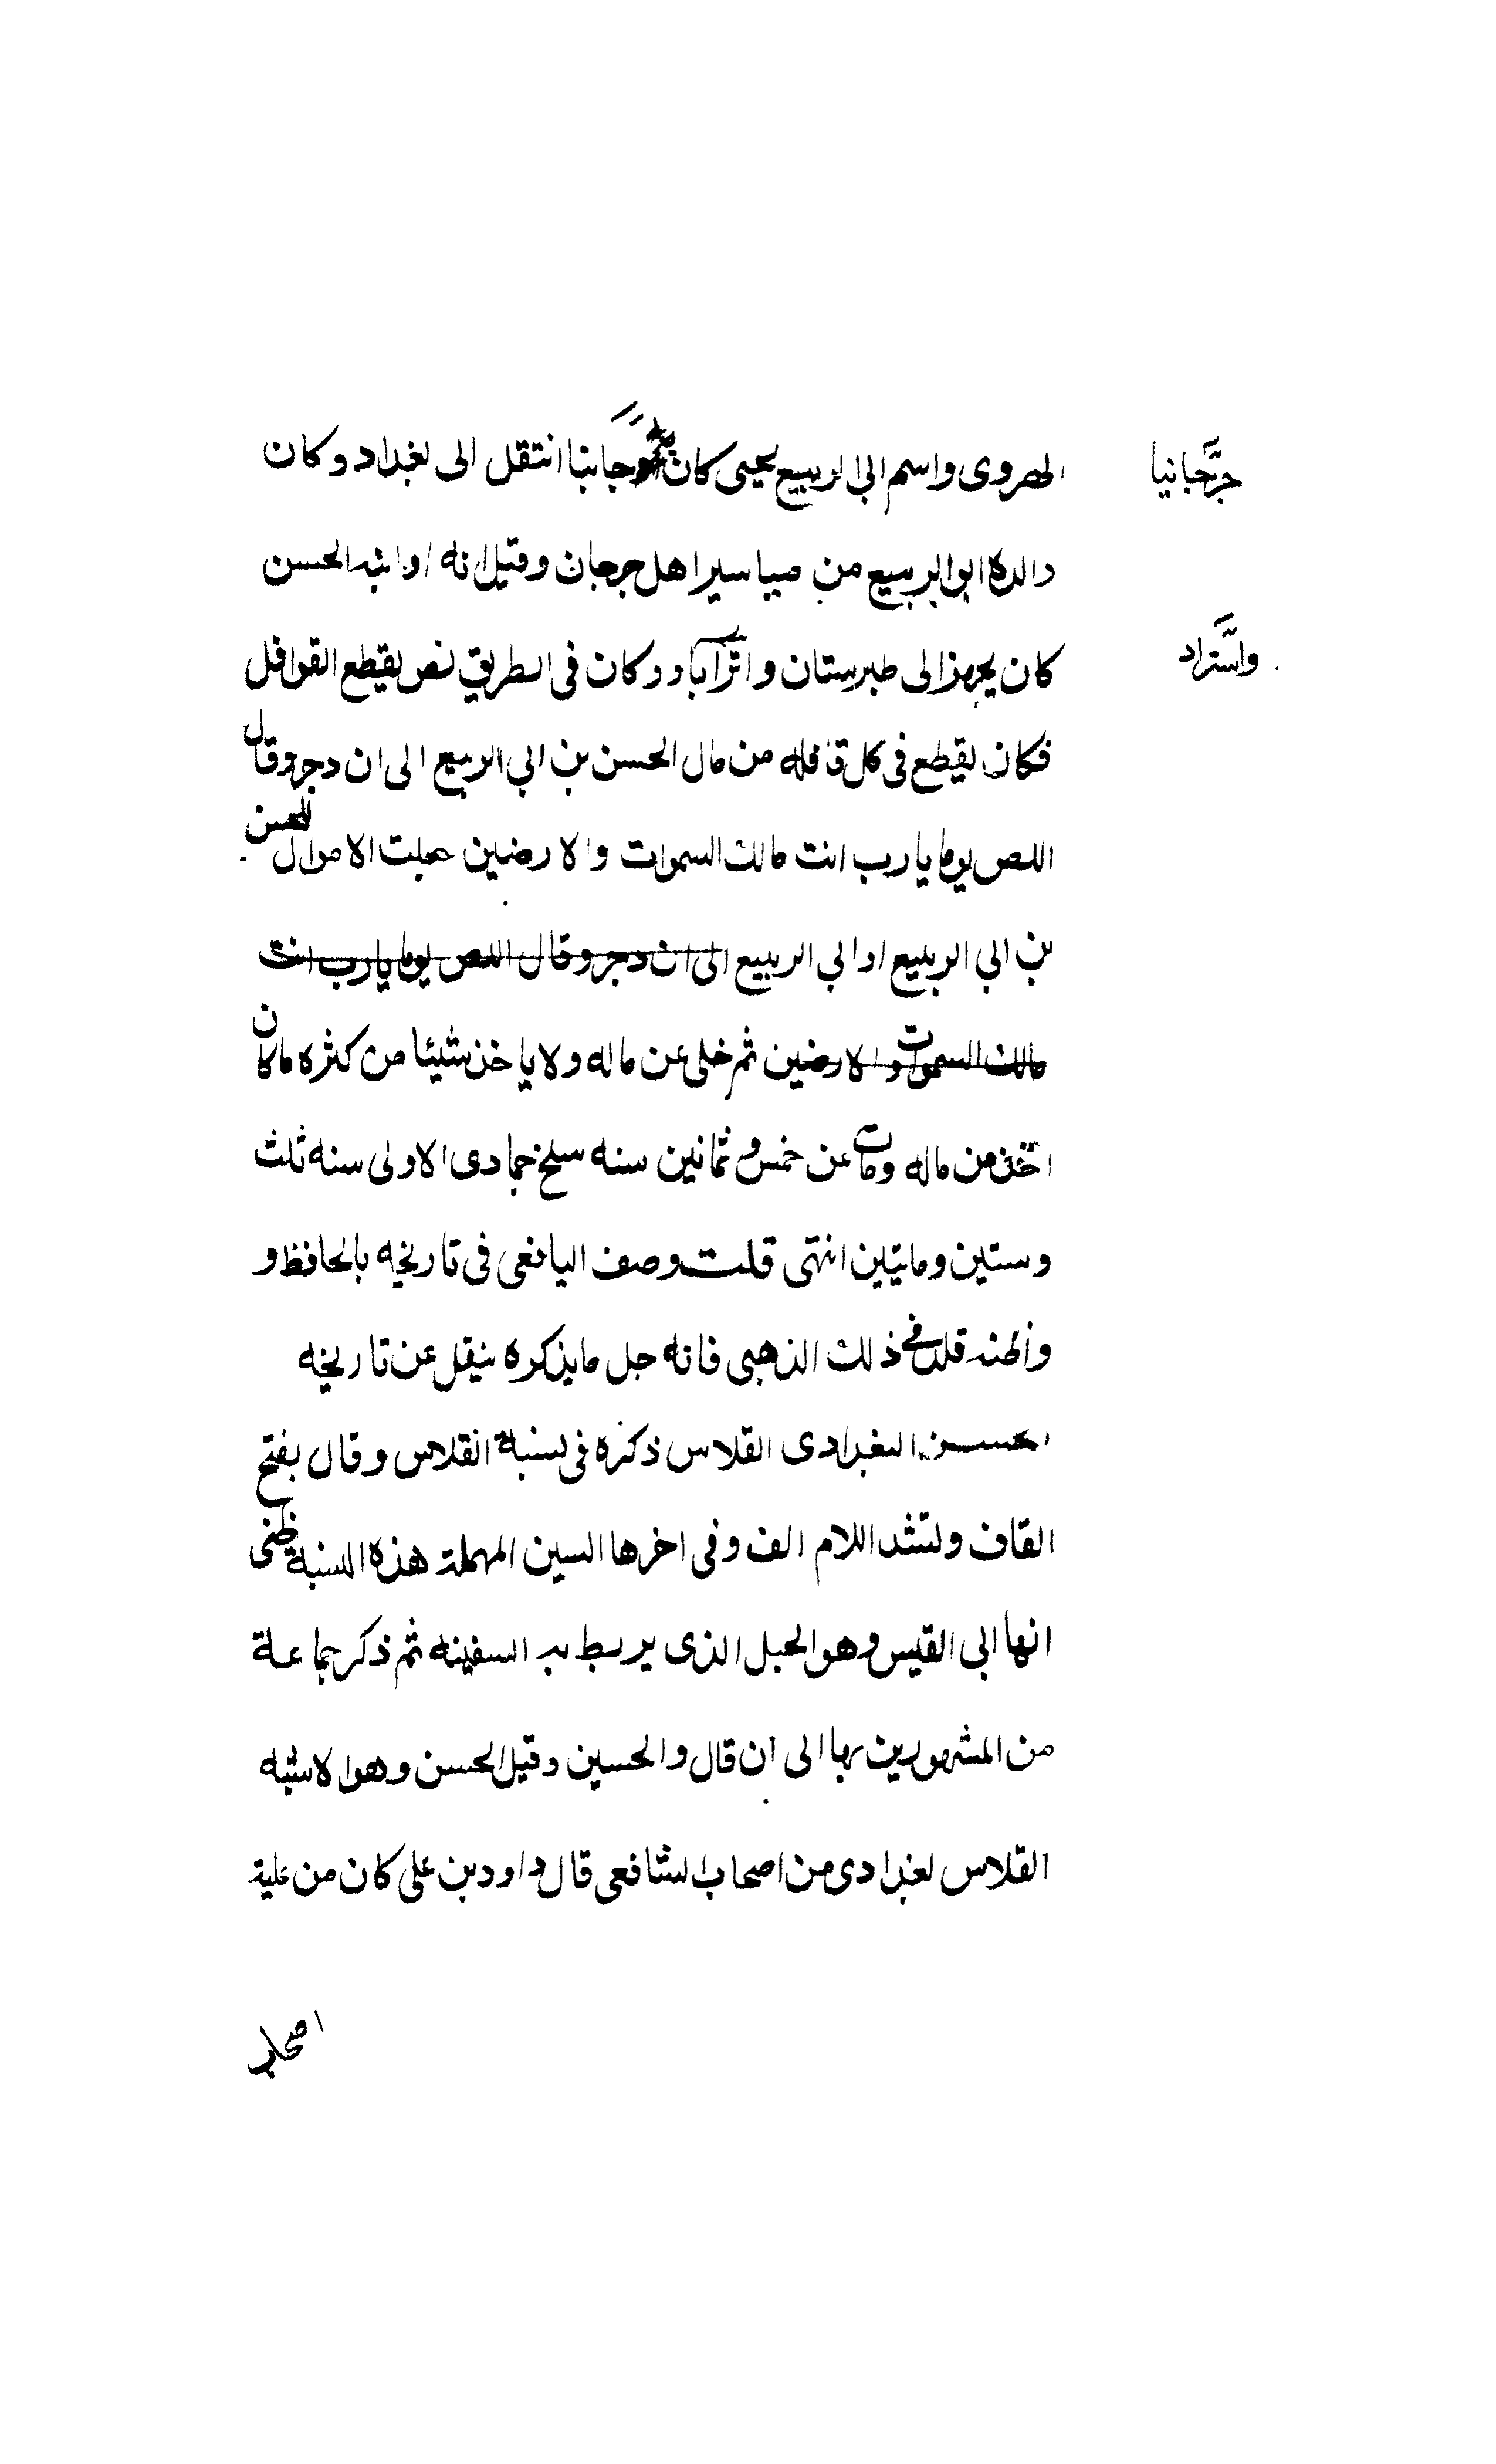 الهروى واسم ابى الربيع يحيى كان جرجانيا انتقل الى بغداد وكان
جرجانيا
والده ابو الربيع من مياسير اهل جرجان وقيل انه او ابنه الحسن
كان يجهز الى طبرستان واتراباد وكان فى الطريق لص يقطع القوافل
واستراد
فكان يقطع فى كل قافله من مال الحسن بن ابى الربيع الى ان دجر وقال
اللص يوما يا رب انت مالك السموات والارضين جعلت الاموال للحسن
بن ابي الربيع او ابي الربيع الى ان دجر وقال اللص يوما يا رب انت
مالك السموات والارضين ثم خلى عن ماله ولا ياخذ شيئا من كثره ماكان
اخذ من ماله ومات عن خمس وثمانين سنه سلخ جمادى الاولى سنه ثلث
وستين ومايتين انتهى قلت وصف اليافعى فى تاريخه بالحافظ و
واظنه قلد فى ذلك الذهبى فانه جل مايذكره ينقل عن تاريخه
الحسن البغدادى القلاس ذكره فى نسبة القلاس وقال بفتح
القاف وتشد اللام الف وفى اخرها السين المهملة هذه النسبة ظنى
انها الى القيس وهو الحبل الذى يربط به السفينه ثم ذكر جماعة
من المشهورين بها الى ان قال والحسين وقيل الحسن وهو الاشبه
القلاس بغدادى من اصحاب الشافعى قال داود بن على كان من علية
اصحابه